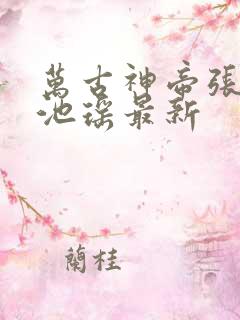 萬古神帝張
池瑤最新
蘭桂